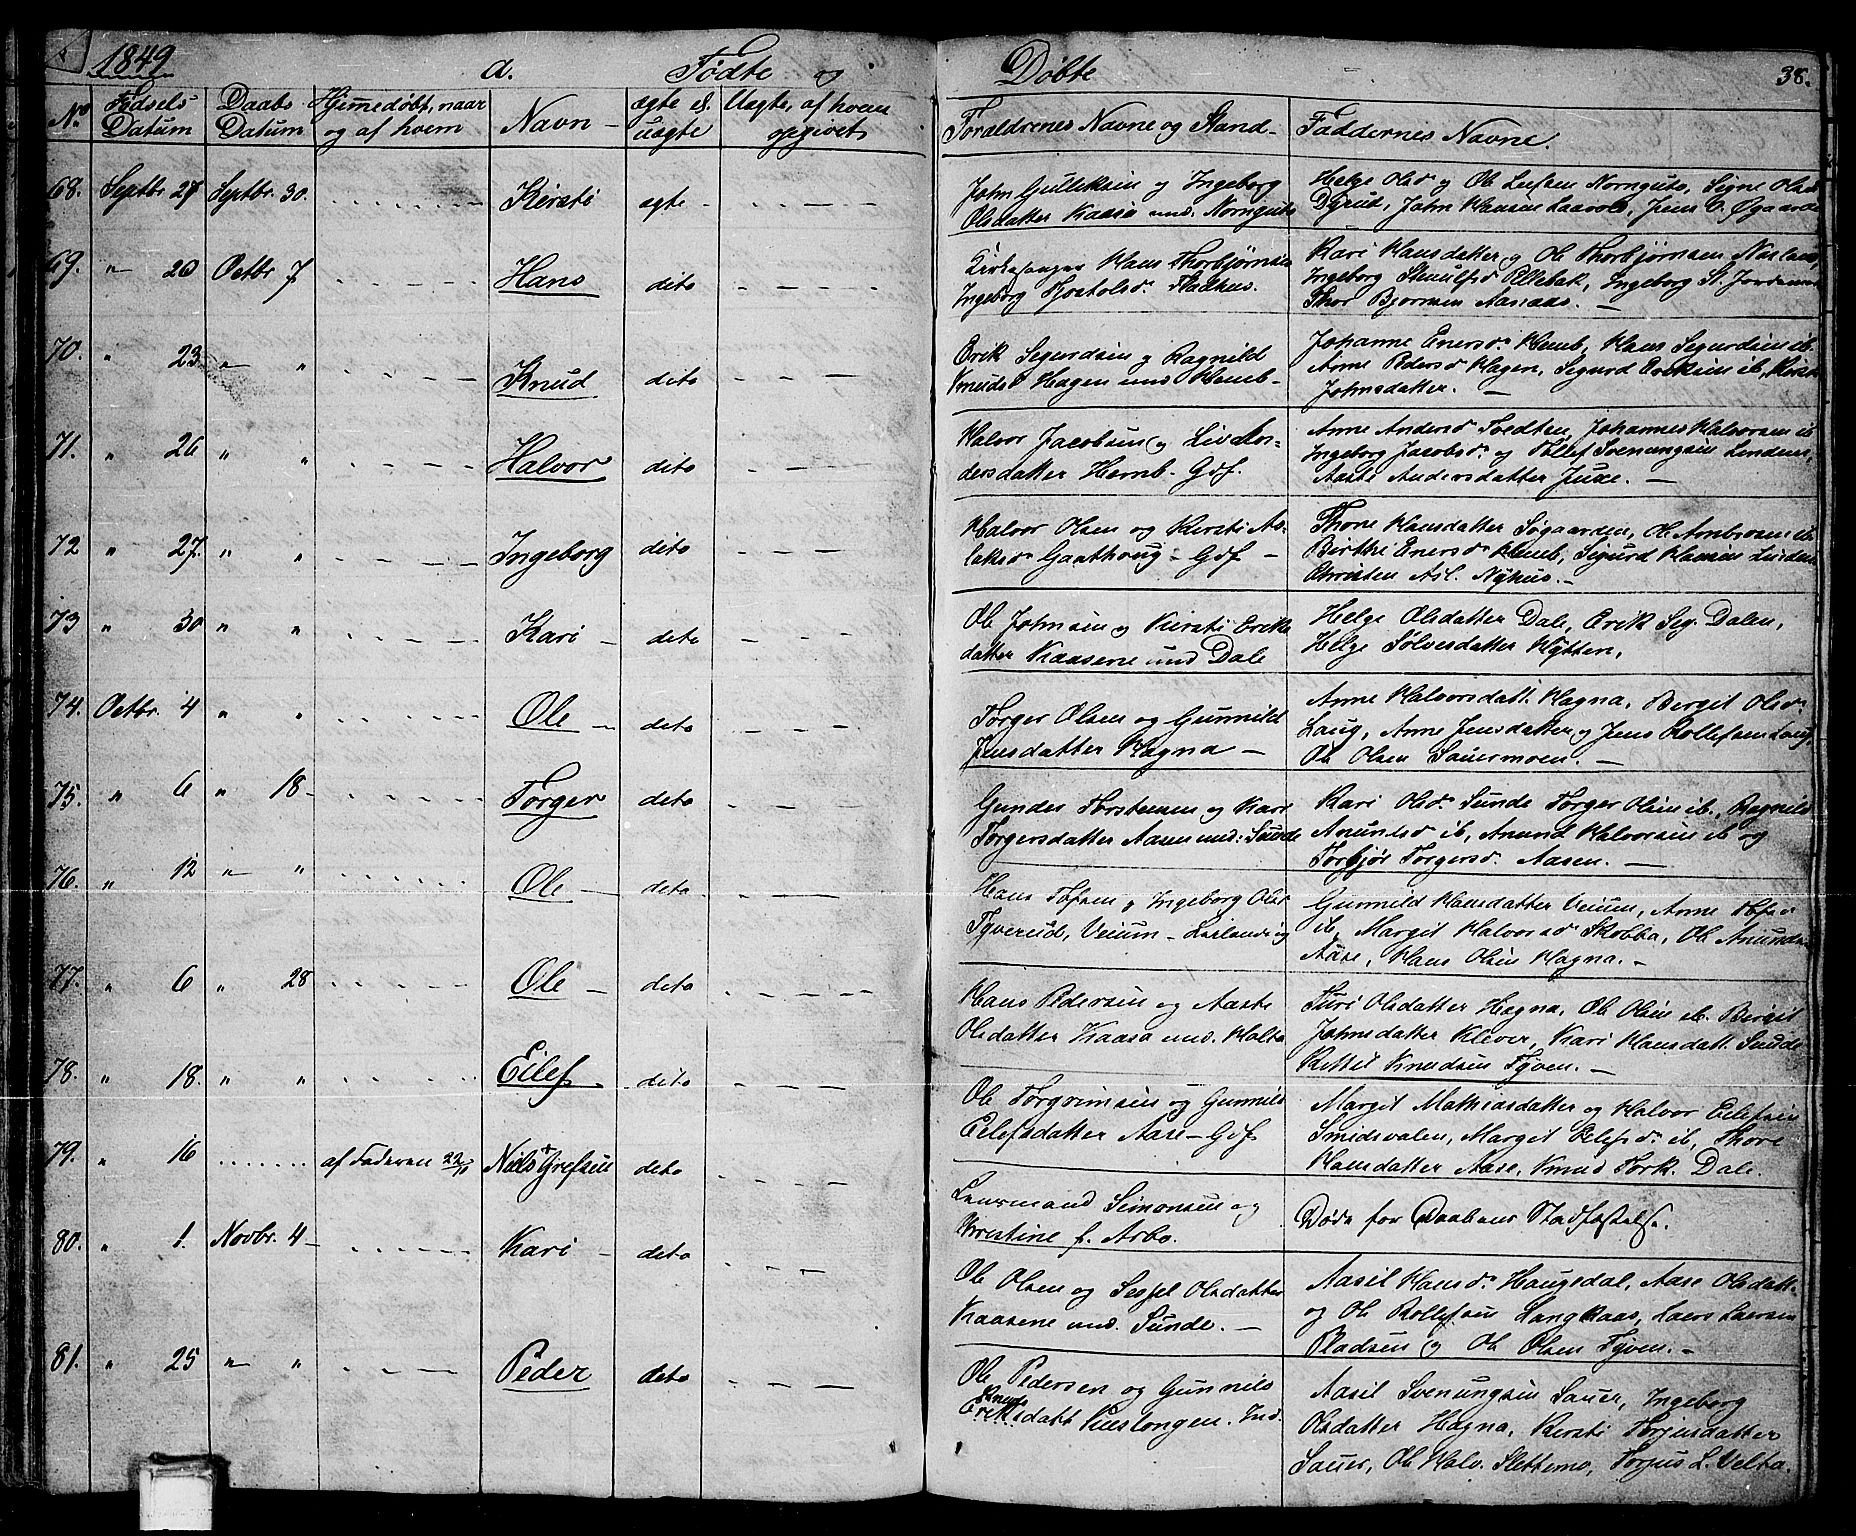 1849
a. Fødte og Døbte 38.
No
Fødsels Datum
Daabs Datum
Hjemmedøbt, naar og af hvem
Navn
ægte el. uægte
Uægte, af hvem opgivet
Forældrenes Navne og Stand
Faddernes Navne.
68. Septbr. 27 Septbr. 30. Kirsti ægte
John Gulleksen og Ingeborg
Olsdatter Kaasa und. Nornguto
Helge Olsd og Ole Leifsen Nornguto, Signe Olsd
Dyrud, John Hansen Laavole, Jens O. Øgaarde
69. " 20 Octbr. 7 Hans dito
Kirkesanger Hans Thorbjørnsen
Ingeborg Kjostolsd.
Kari Hansdatter og Ole Thorbjørnsen
Ingeborg Ollebak, Ingeborg St.
Thor Bjørnsen Aasaas. —
70. " 23 " " Knud dito
Erik Segurdsen og Ragnild
Knudsd Hagen und Hemb-
Johanne Enersd. Hemb, Hans Segurdsen ib
Anne Pedersd Hagen, Segurd Eriksen ib, Kirsti
Johnsdatter. —
71. " 26 " " Halvor dito
Halvor Jacobsen og Liv An-
dersdatter Hemb. Gdf.
Anne Andersd Tvedten, Johannes Halvorsen ib
Ingeborg Jacobsd. og Tollef Svenungsen Lindem,
Aaste Andersdatter Juxe. —
72 " 27. " " Ingeborg dito
Halvor Olsen og Kersti As-
laksd Gaathoug - Gdf -
Thone Hansdatter Søgaarden, Ole Ambrosen ib
Birthe Enersd Hemb, Sigurd Hansen Lindem
Christen Asl. Nyhus. —
73 " 30 " " Kari - dito
Ole Johnsen og Kirsti Eriks
datter Kaasene und Dale
Helge Olsdatter Dale, Erik Seg. Dalen,
Helge Sølvesdatter Hytten,
74. Octbr. 4 " " Ole - dito
Torger Olsen og Gunnild
Jensdatter Hagna —
Anne Halvorsdatt. Hagna, Bergit Olsd.
Laug, Anne Jensdatter og Jens Rollefsen Laug,
Ole Olsen Sauermoen. —
75. " 6 " 18 - Torger dito
Gunder Torstensen og Kari
Torgersdatter Aasen und: Sunde
Kari Olsd. Sunde Torger Olsen ib., Ragnild
Anunlsd ib, Anund Halvorsen ib og
Torbjør Torgersd. Aasen. —
76. " 12 " " Ole - dito
Hans Tofsen og Ingeborg Olsd
Tyverud, Veium -
Gunnild Hansdatter Veium, Anne
ib, Margit Halvorsd Skobba, Ole
Aase, Hans Olsen Hagna. -
77. " 6 " 28 Ole - dito
Hans Pedersen og Aaste
Olsdatter Kaasa und. Holta
Turi Olsdatter Hagna, Ole Olsen ib. Bergit
Johnsdatter Klever, Kari Hansdatt. Sunde
Kittil Knudsen Tyven. —
78. " 18. " " Eilef. dito
Ole Torgrimsen og Gunnild
Eilefsdatter Aase - Gdf
Margit Mathiasdatter og Halvor Eilefsen
Smidsvalen, Margit Eilefsd. ib, Thore
Hansdatter Aase, Knud Tork. Dale.
79. " 16 af Faderen 22/11 Niels + Grefsen dito
Lensmand Simonsen og
Kirstine f. Arbo.
Døde før Daabens Stadfæstelse.
80. " 1. Novbr. 4 - Kari - dito
Ole Olsen og Sessel Olsdatter
Kaasene und. Sunde. —
Aasil Hansd. Haugedal, Aase Olsdatt.
og Ole Rollefsen Langkaas, Laers Laersen
Pladsen og Ole Olsen Tyven. -
81. " 25 " " Peder dito
Ole Pedersen og Gunnild
Knuds
Eriksdatt Kaaslongen. Ind.
Aasil Svenungsen Sauer, Ingeborg
Olsdatter Hagna, Kersti Torjusdatter
Sauer, Ole Halv. Slettemo, Torjus L. Velta.